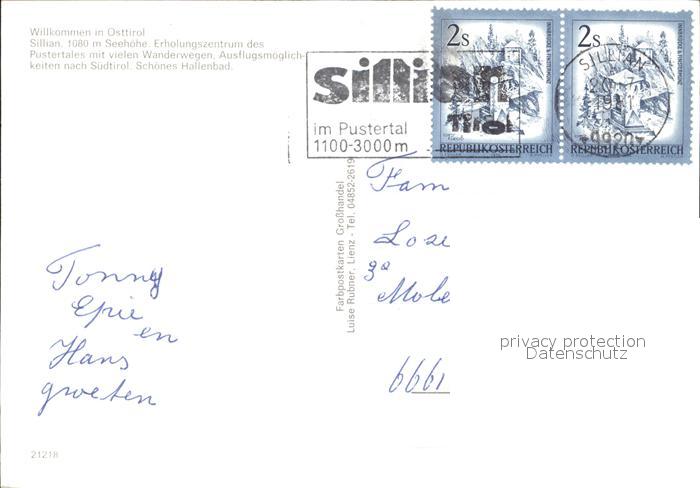 Willkommen in Osttirol
Sillian, 1080 m Seehöhe. Erholungszentrum des
Pustertales mit vielen Wanderwegen, Ausflugsmöglich-
keiten nach Südtirol. Schönes Hallenbad.
sillian
Tirol
im Pustertal
1100-3000m
2s
2s
REPUBLIK ÖSTERREICH
REPUBLIK ÖSTERREICH
SILLIAN
9920
Farbpostkarten Großhandel
Luise Rubner, Lienz - Tel. 04852-2619
Fam
Lose
Mole
6661
Tonny
Epie
en
Hans
groeten
privacy protection
Datenschutz
21218